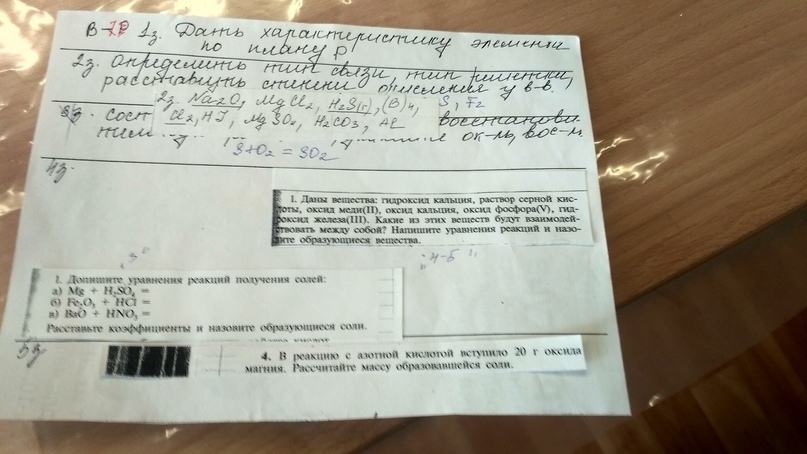 1з. Дать характеристику элемента
по плану P
2з. Определить тип связи, тип решетки,
расставить степени окисления у в-в.
2з. Na₂O, MgCl₂, H₂S(г), (B)₄, S, F₂
3з. сост Cl₂, HJ, MgSO₄, H₂CO₃, Al восстанови
тель ок-ль, вос-ль
S+O₂ = SO₂
4з.
1. Даны вещества: гидроксид кальция, раствор серной кис-
лоты, оксид меди(II), оксид кальция, оксид фосфора(V), гид-
роксид железа(III). Какие из этих веществ будут взаимодей-
ствовать между собой? Напишите уравнения реакций и назо-
вите образующиеся вещества.
„3" „4-5"
1. Допишите уравнения реакций получения солей:
а) Mg + H₂SO₄ =
б) Fe₂O₃ + HCl =
в) BaO + HNO₃ =
Расставьте коэффициенты и назовите образующиеся соли.
5з
4. В реакцию с азотной кислотой вступило 20 г оксида
магния. Рассчитайте массу образовавшейся соли.